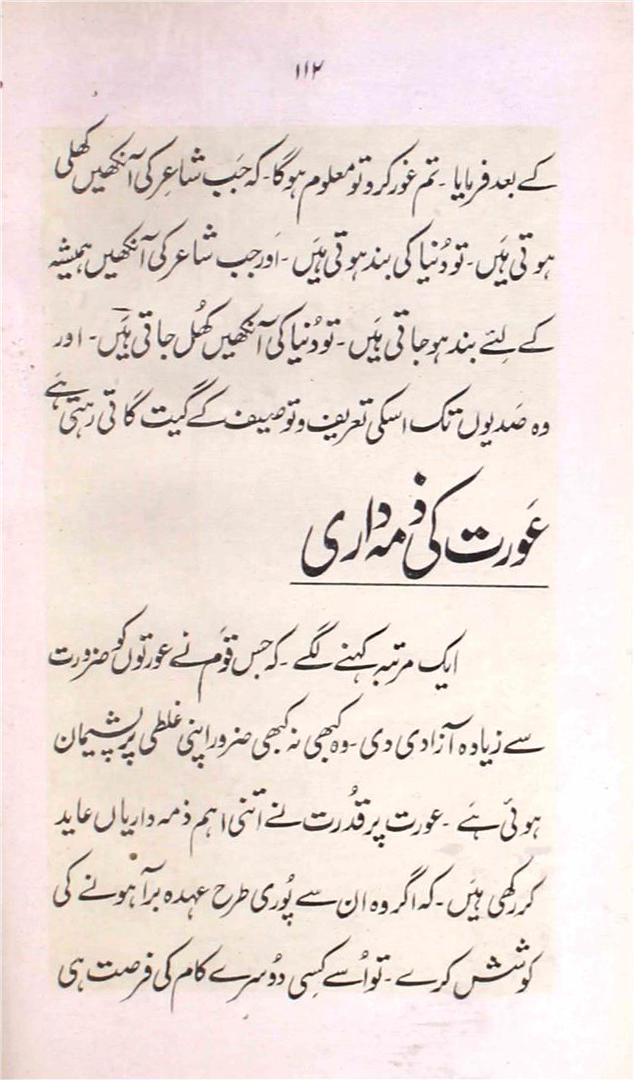 ۱۱۲
کے بعد فرمایا۔ تم غور کرو تو معلوم ہوگا۔ کہ جَب شاعِر کی آنکھیں کھلی
ہوتی ہَیں۔ تو دُنیا کی بند ہوتی ہَیں۔ اَور جب شاعر کی آنکھیں ہمیشہ
کے لِئے بند ہو جاتی ہَیں۔ تو دُنیا کی آنکھیں کھُل جاتی ہَیں۔ اور
وہ صَدیوں تک اسکی تعریف و توصیف کے گیت گاتی رہتی ہَے
عَورت کی ذمہ داری
ایک مرتبہ کہنے لگے۔ کہ جس قوَم نے عورتوں کو ضرورت
سے زیادہ آزادی دی۔ وہ کبھی نہ کبھی ضرور اپنی غلطی پر پشیمان
ہوئی ہَے۔ عورت پر قُدرت نے اتنی اہم ذمہ داریاں عاید
کر رکھی ہَیں۔ کہ اگر وہ ان سے پُوری طرح عہدہ برآ ہونے کی
کوشش کرے۔ تو اُسے کِسی دُوسرے کام کی فرصت ہی